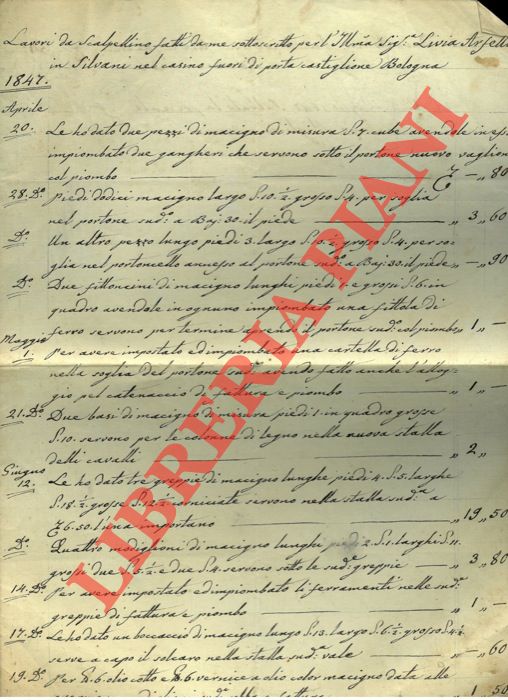 Lavori da Scalpellino fatti da me sottoscritto per l'Illma Sigª Livia
in Silvani nel casino fuori di porta castiglione Bologna
1847.
Aprile
20. Le hò dato due pezzi di macigno di misura S. 7. cube avendole in essi
impiombato due gangheri che servono sotto il portone nuovo vagliono
col piombo — „ 80
28. Dº Piedi dodici macigno largo S. 10. ½ grosso S. 4. per soglia
nel portone sudº a Baj: 30. il piede „ 3 „ 60
Dº Un altro pezzo lungo piedi 3. largo S. 10. ½ grosso S. 4. per so-
glia nel portoncello annesso al portone sudº a Baj: 30. il piede „ — „ 90
Dº Due fittoncini di macigno lunghi piedi 1. e grossi S. 6. in
quadro avendole in ognuno impiombato una fittola di
ferro servono per termine il portone sudº col piombo „ 1 „ —
Maggio
1. Per avere impostato ed impiombato una cartella di ferro
nella soglia del portone sudº avendo fatto anche l'allog-
gio pel catenaccio di fattura e piombo „ 1 „ —
21. Dº Due basi di macigno di misura piedi 1. in quadro grosse
S. 10. servono per le colonne di legno nella nuova stalla
delli cavalli „ 2 „
Giugno
12. Le hò dato tre greppie di macigno lunghe piedi 4. S. 5. larghe
S. 18. ½ grosse S. 12. ½ corniciate servono nella stalla sudª a
6. 50. l'una importano „ 19 „ 50
Dº Quattro modiglioni di macigno lunghi piedi 2. S. 1. larghi S. 11.
grossi due S. 5. ½ e due S. 4. servono sotto le sudº greppie — „ 3 „ 80
14. Dº Per avere impostato ed impiombato li ferramenti nelle sudº
greppie di fattura e piombo „ 1 „ —
17. Dº Le hò dato un boccaccio di macigno lungo S. 13. largo S. 6. ½ grosso S. 4. ½
serve a capo il solcaro nella stalla sudª vale „ — „ 60
19. Dº Per 6 olio cotto e 6 vernice a olio color macigno data alle
1 50
LIBRERIA PIANI